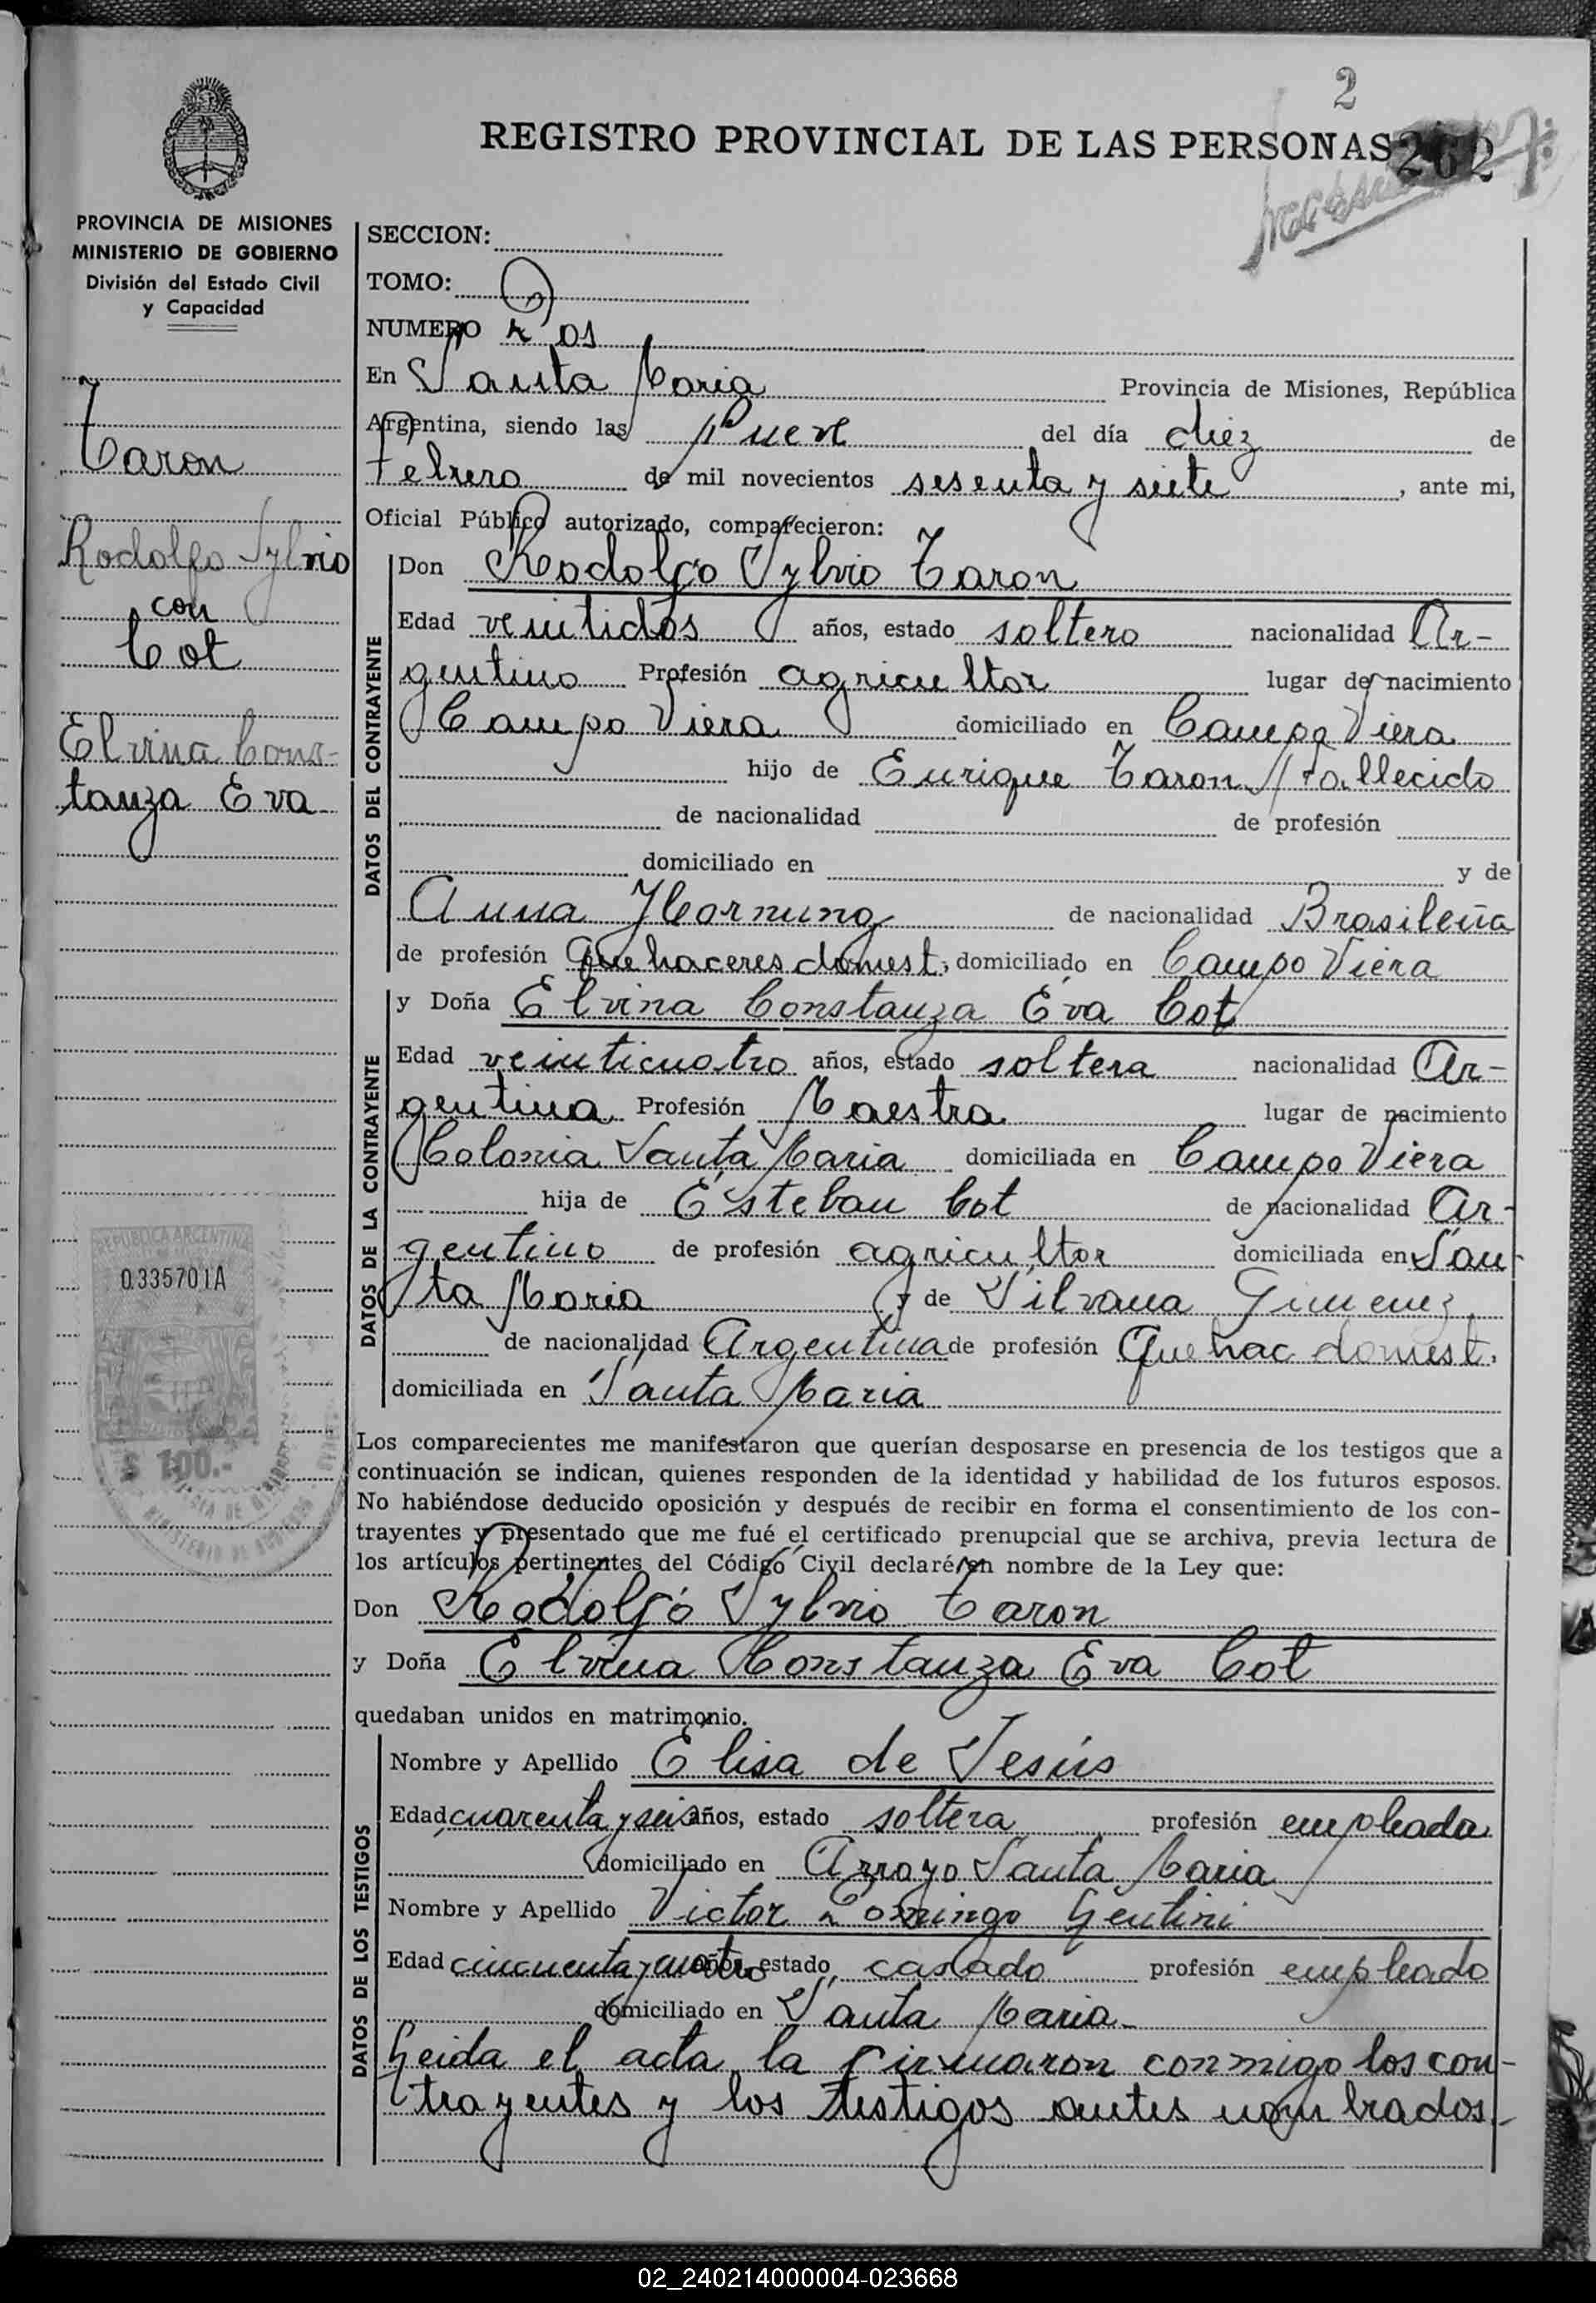 2
REGISTRO PROVINCIAL DE LAS PERSONAS 262
PROVINCIA DE MISIONES
MINISTERIO DE GOBIERNO
División del Estado Civil
y Capacidad
Taron
Rodolfo Sylvio
con
Cot
Elvina Cons-
tanza Eva
REPUBLICA ARGENTINA
0335701A
$ 100.-
SECCION:
TOMO:
NUMERO Dos
En Santa Maria Provincia de Misiones, República
Argentina, siendo las nueve del día diez de
Febrero de mil novecientos sesenta y siete, ante mi,
Oficial Público autorizado, comparecieron:
DATOS DEL CONTRAYENTE
Don Rodolfo Sylvio Taron
Edad veintidos años, estado soltero nacionalidad Ar-
gentino Profesión agricultor lugar de nacimiento
Campo Viera domiciliado en Campo Viera
hijo de Enrique Taron fallecido
de nacionalidad de profesión
domiciliado en y de
Anna Hornung de nacionalidad Brasileña
de profesión Quehaceres domest, domiciliado en Campo Viera
DATOS DE LA CONTRAYENTE
y Doña Elvina Constanza Eva Cot
Edad veinticuatro años, estado soltera nacionalidad Ar-
gentina Profesión Maestra lugar de nacimiento
Colonia Santa Maria domiciliada en Campo Viera
hija de Esteban Cot de nacionalidad Ar-
gentino de profesión agricultor domiciliada en San-
ta Maria y de Silvana Gimenez
de nacionalidad Argentina de profesión Quehac domest.
domiciliada en Santa Maria
Los comparecientes me manifestaron que querían desposarse en presencia de los testigos que a
continuación se indican, quienes responden de la identidad y habilidad de los futuros esposos.
No habiéndose deducido oposición y después de recibir en forma el consentimiento de los con-
trayentes y presentado que me fué el certificado prenupcial que se archiva, previa lectura de
los artículos pertinentes del Código Civil declaré en nombre de la Ley que:
Don Rodolfo Sylvio Taron
y Doña Elvina Constanza Eva Cot
quedaban unidos en matrimonio.
DATOS DE LOS TESTIGOS
Nombre y Apellido Elisa de Jesús
Edad cuarenta y seis años, estado soltera profesión empleada
domiciliado en Arroyo Santa Maria
Nombre y Apellido Victor Domingo Gentini
Edad cincuenta y cuatro años, estado casado profesión empleado
domiciliado en Santa Maria
Leida el acta la firmaron conmigo los con-
trayentes y los testigos antes nombrados.-
02_240214000004-023668